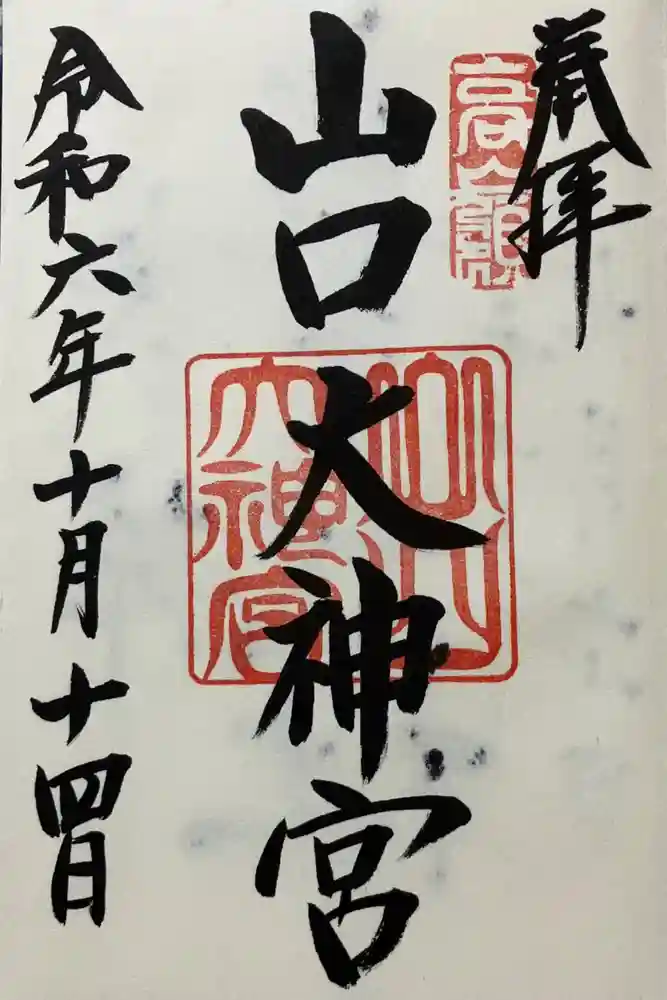 奉拝
高嶺
山口大神宮
山口大神宮
令和六年十月十四日